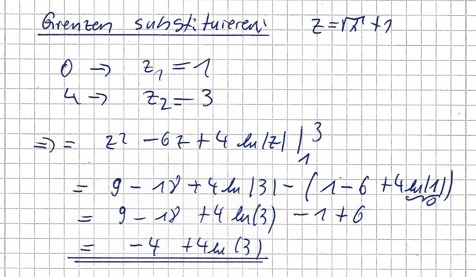 Grenzen substituieren: z = √x + 1
0 → z₁ = 1
4 → z₂ = 3
⇒ = z² - 6z + 4 ln|z| |₁³
= 9 - 18 + 4 ln|3| - (1 - 6 + 4 ln(1))
0
= 9 - 18 + 4 ln(3) - 1 + 6
= -4 + 4 ln(3)